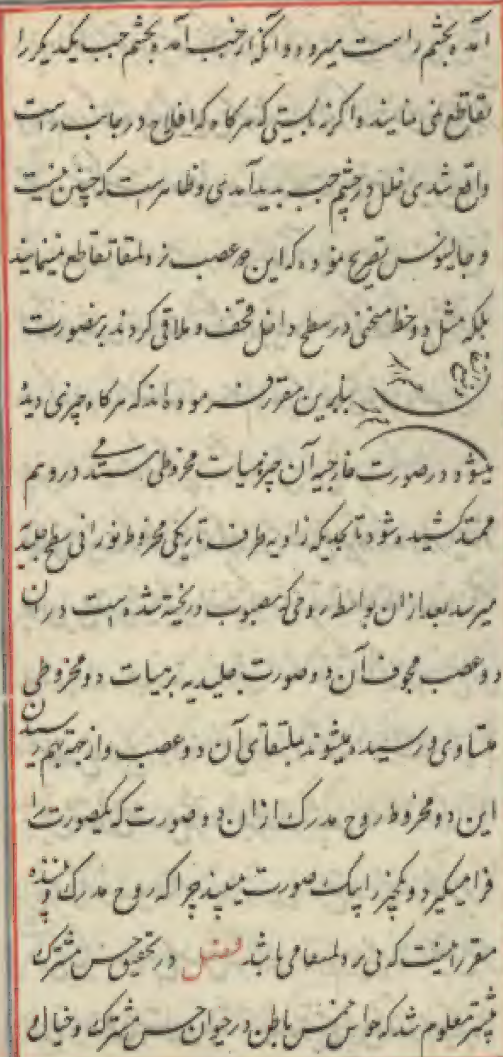 آمده بچشم راست میرود و آنکه از جنب آمده بچشم جنب یکدیگر را
تقاطع نمی نمایند و اگر نه بایستی که هرگاه که افلاج در جانب راست
واقع شدی خلل در چشم چپ پدید آمدی و ظاهر است که چنین نیست
و جالینوس تصریح نموده که این دو عصب نزد ملتقا تقاطع نمینمایند
بلکه مثل دو خط منحنی در سطح داخل قحف و ملاقی کردند برینصورت
بنابرین مقرر فرموده اند که هرگاه چیزی دیده
میشود در صورت خارجیه آن چیز بهیات مخروطی مستدیر در وهم
ممتد کشیده شود تا بحدیکه زاویه طرف تاریکی مخروط نورانی سطح جلیدیه
میرسد بعد از ان بواسطه روحی که مصبوب و ریخته شده است در ان
دو عصب مجوف آن دو صورت جلیدیه بر هیات دو مخروطی
متساوی رسیده میشوند بملتقای آن دو عصب و از جهة بهم رسیدن
این دو مخروط روح مدرک از ان دو صورت که یکصورت را
فرا میگیرد و یکچیز را یک صورت میبیند چرا که روح مدرک و بیننده
مقرر اینست که نی در ملتقا می باشد فصل در تحقیق حس مشترک
پیشتر معلوم شد که حواس خمس باطن در حیوان حس مشترک و خیال